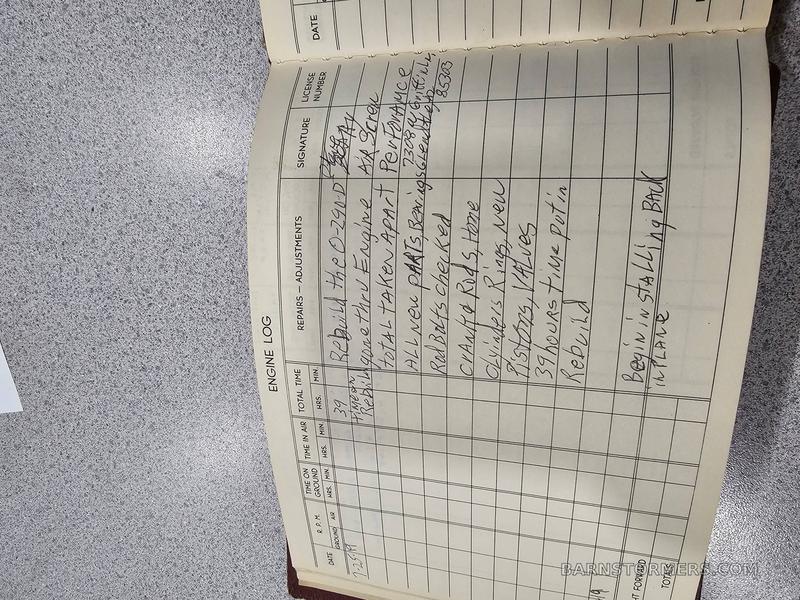 DATE
ENGINE LOG
DATE R.P.M. TIME ON GROUND TIME IN AIR TOTAL TIME REPAIRS – ADJUSTMENTS SIGNATURE LICENSE NUMBER
GROUND AIR HRS. MIN. HRS. MIN. HRS. MIN.
39 Rebuild the O-290-D
Time on gone thru Engine Air Screw
Rebuild TOTAL TAKEN APART Performance
ALL NEW PARTS, Bearings 7308
Rod Bolts checked 85303
Crank & Rods, Hone
Cylinders Rings, New
Pistons, Valves
39 hours time put in
Rebuild
Begin installing BACK
IN PLANE
T FORWARD
TOTAL
BARNSTORMERS.COM